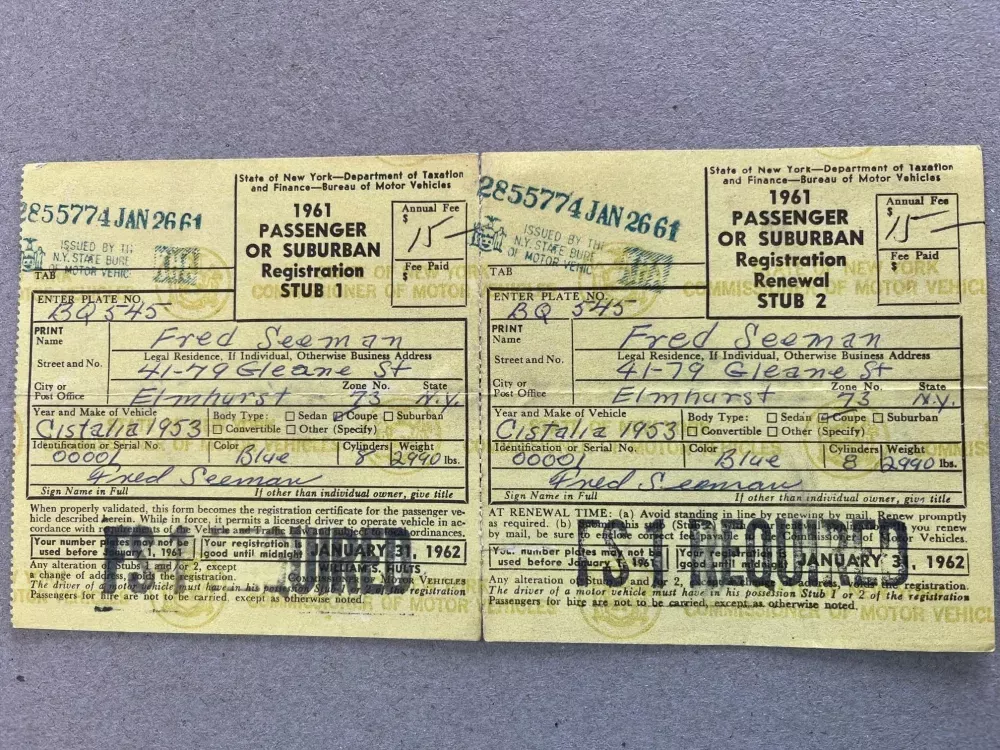 State of New York—Department of Taxation
and Finance—Bureau of Motor Vehicles
2855774 JAN 26 61
ISSUED BY TH
N.Y. STATE BURE
OF MOTOR VEHIC
TAB
1961
PASSENGER
OR SUBURBAN
Registration
STUB 1
Annual Fee
$ 15—
Fee Paid
$
ENTER PLATE NO.
BQ 545
PRINT
Name Fred Seeman
Legal Residence, If Individual, Otherwise Business Address
Street and No. 41-79 Gleane St
City or
Post Office Elmhurst Zone No. 73 State N.Y.
Year and Make of Vehicle Cistalia 1953
Body Type: Sedan Coupe Suburban
Convertible Other (Specify)
Identification or Serial No. 00001 Color Blue Cylinders 8 Weight 2990 lbs.
Fred Seeman
Sign Name in Full If other than individual owner, give title
When properly validated, this form becomes the registration certificate for the passenger ve-
hicle described herein. While in force, it permits a licensed driver to operate vehicle in ac-
cordance with of the Vehicle and Traffic ordinances.
Your number plates may not be
used before January 1, 1961
Your registration is
good until midnight JANUARY 31, 1962
WILLIAM S. HULTS
Any alteration of Stubs or 2, except
a change of address, voids the registration. COMMISSIONER OF MOTOR VEHICLES
The driver of a motor vehicle must have in his possession Stub 1 or 2 of the registration
Passengers for hire are not to be carried, except as otherwise noted.
State of New York—Department of Taxation
and Finance—Bureau of Motor Vehicles
2855774 JAN 26 61
ISSUED BY THE
N.Y. STATE BURE
OF MOTOR VEHIC
TAB
1961
PASSENGER
OR SUBURBAN
Registration
Renewal
STUB 2
Annual Fee
$ 15—
Fee Paid
$
ENTER PLATE NO.
BQ 545
PRINT
Name Fred Seeman
Legal Residence, If Individual, Otherwise Business Address
Street and No. 41-79 Gleane St
City or
Post Office Elmhurst Zone No. 73 State N.Y.
Year and Make of Vehicle Cistalia 1953
Body Type: Sedan Coupe Suburban
Convertible Other (Specify)
Identification or Serial No. 00001 Color Blue Cylinders 8 Weight 2990 lbs.
Fred Seeman
Sign Name in Full If other than individual owner, give title
AT RENEWAL TIME: (a) Avoid standing in line by renewing by mail. Renew promptly
as required. (b) this Stub you renew
by mail, be sure to enclose correct fee payable to Commissioner of Motor Vehicles.
FS 1 REQUIRED
Your number plates may not be
used before January 1, 1961
Your registration is
good until midnight JANUARY 31, 1962
Any alteration of Stubs or 2, address, voids the registration.
The driver of a motor vehicle must have in his possession Stub 1 or 2 of the registration
Passengers for hire are not to be carried, except as otherwise noted.